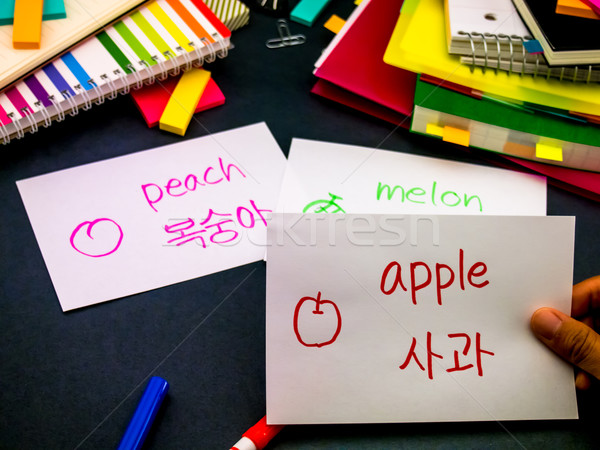 peach
복숭아
melon
apple
사과
stockfresh